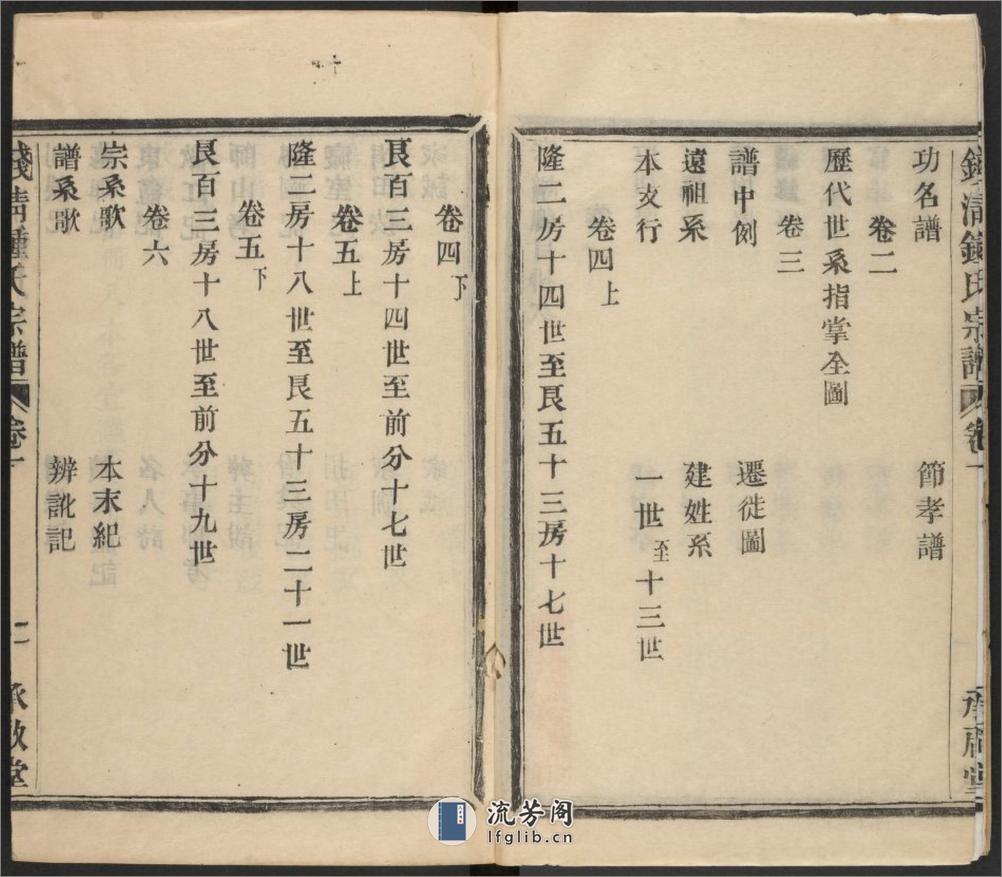 功名譜 節孝譜
卷二
歷代世系指掌全圖
卷三
譜中例 遷徙圖
遠祖系 建姓系
本支行 一世至十三世
卷四上
隆二房十四世至艮五十三房十七世
卷四下
艮百三房十四世至前分十七世
卷五上
隆二房十八世至艮五十三房二十一世
卷五下
艮百三房十八世至前分十九世
卷六
宗系歌 本末紀
譜系歌 辨訛記
氏宗譜 卷一 承啟堂
流芳阁
lfglib.cn